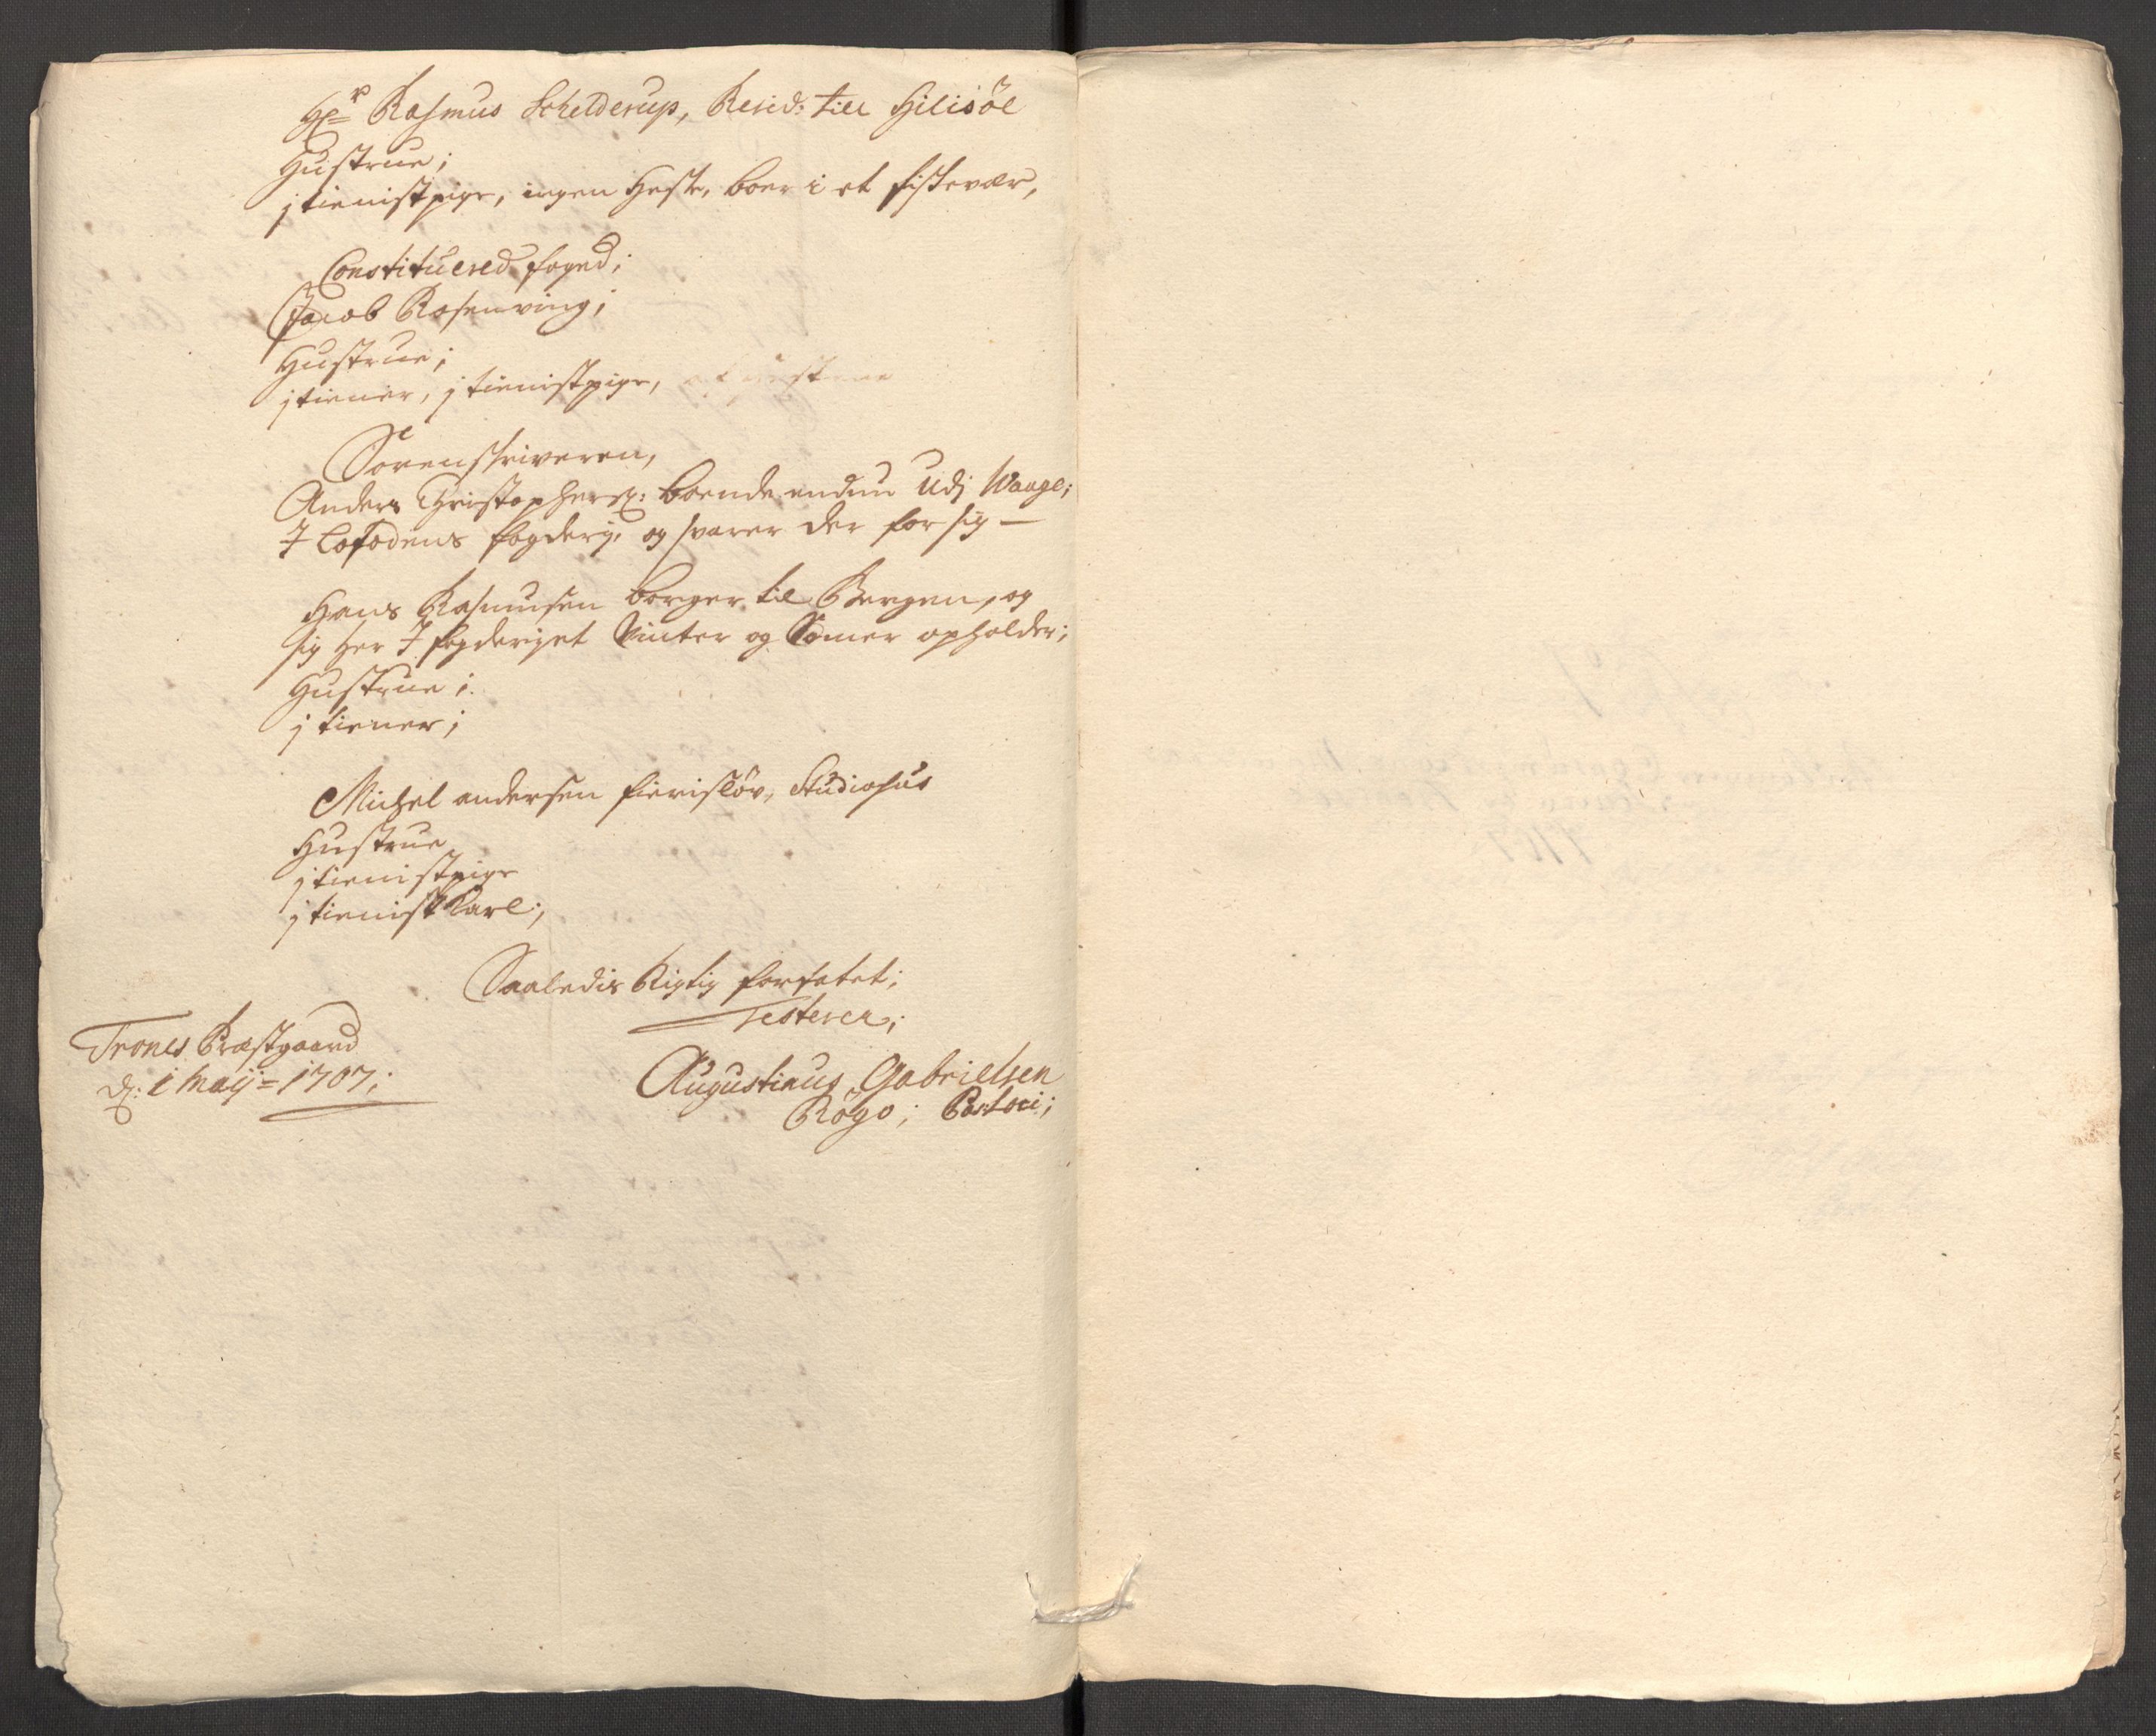 Hr Rasmus Schelderup, Resid: till Hilisöe
Hustrue;
j tienistpige, ingen Heste, boer i et fiskevær,
Constituered foged;
Jacob Rosenving;
Hustrue;
j tiener, j tienistpige,
Sorenskriveren,
Anders Christophers: boende endnu Udj Waage;
I Lofodens fogderj, og svarer der for sig —
Hans Rasmusen borger til Bergen, og
sig her I fogderiet Vinter og Somer opholder;
Hustrue;
j tiener;
Michel andersen fierisløv, Studiosus
Hustrue
j tienistpige
j tienist Karl;
Saaledis Rigtig forfatet;
Testerer;
Trones Præstgaard
d: 1 Maij = 1707;
Augustinus Gabrielsen
Rögo; Pastori;